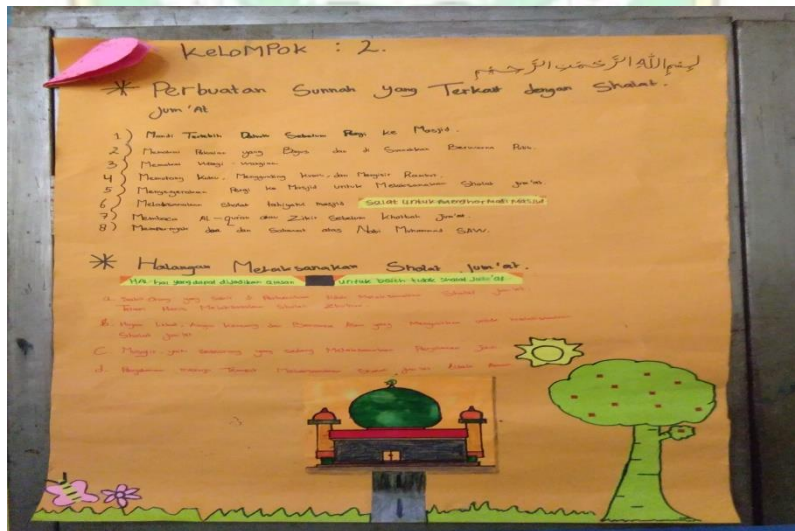 KeLoMPok : 2.
بِسْمِ اللَّهِ الرَّحْمَٰنِ الرَّحِيْمِ
* Perbuatan Sunnah yang Terkait dengan Shalat.
Jum'At
1) Mandi Terlebih Dahulu Sebelum Pergi ke Masjid.
2) Memakai Pakaian yang Bagus dan di Sunahkan Berwarna Putih.
3) Memakai Wangi-wangian.
4) Memotong Kuku, Menggunting Kumis, dan Menyisir Rambut.
5) Menyegerakan Pergi ke Masjid untuk Melaksanakan Shalat Jum'at.
6) Melaksanakan Shalat tahiyatul masjid Salat untuk Masjid
7) Membaca AL-Qur'an atau Zikir Sebelum Khotbah Jum'at.
8) Memperbanyak doa dan Salawat atas Nabi Muhammad SAW.
* Halangan Melaksanakan Shalat Jum'at.
Hal-hal yang dapat dijadikan alasan untuk boleh tidak Shalat Jum'at
a. Sakit, Orang yang Sakit di Melaksanakan Shalat Jum'at
Tetapi Harus Melaksanakan Shalat Zhuhur.
b. Hujan Lebat, Angin Kencang dan Bencana Alam yang untuk melaksanakan
Shalat Jum'at
c. yang sedang Melaksanakan Perjalanan Jauh
d. Melaksanakan Shalat Jum'at